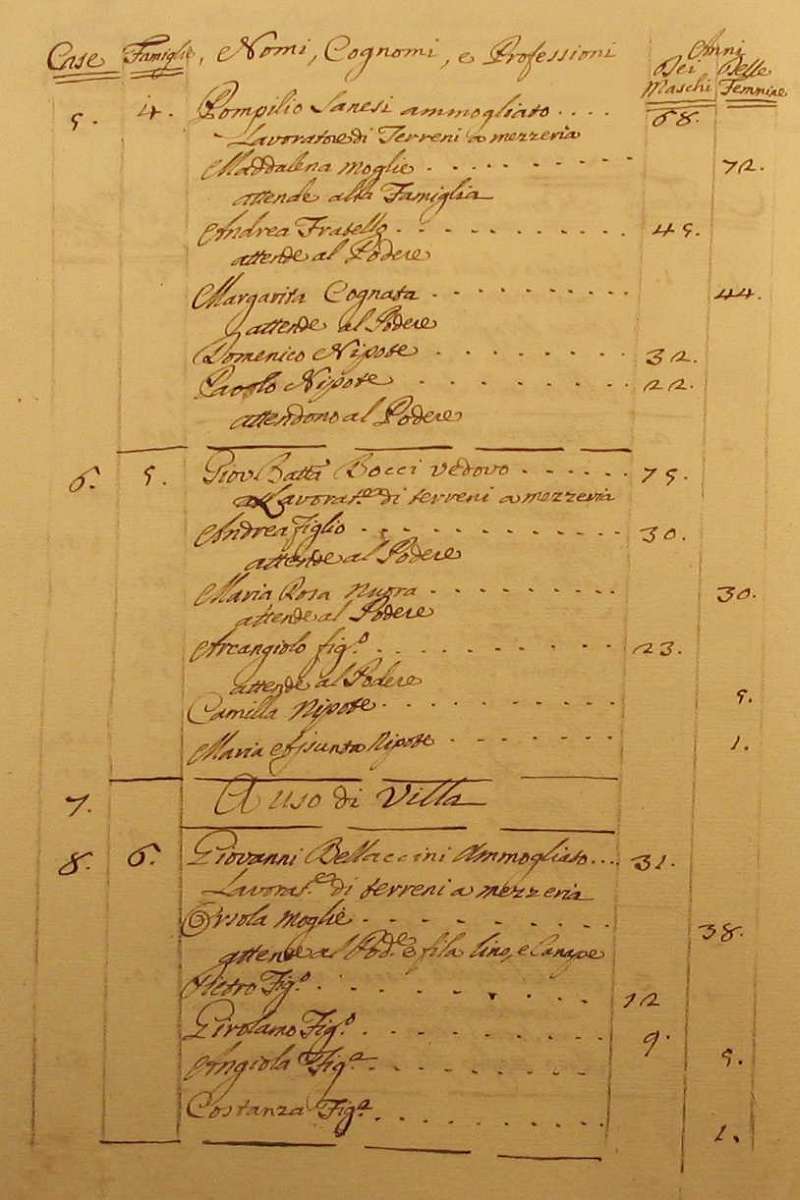 Case Famiglie, Nomi, Cognomi, e Professioni Anni
Dei Maschi Delle Femmine
5. 4. Pompilio Sanesi ammogliato .... 68.
Lavoratore di Terreni a mezzeria
Maddalena moglie 72.
attende alla Famiglia
Andrea Fratello 45.
attende al Podere
Margarita Cognata 44.
attende al Podere
Domenico Nipote 32.
Paolo Nipote 22.
attendono al Podere
6. 5. Giov Batta Bocci vedovo 75.
Lavorat.re di terreni a mezzeria
Andrea figlio 30.
attende al Podere
Maria Rosa Nuora 30.
attende al Podere
Arcangiolo fig.o 23.
attende al Podere
Camilla Nipote 5.
Maria Assunta Nipote 1.
7. A uso di Villa
8. 6. Giovanni Bellaccini Ammogliato... 31.
Lavorat.re di terreni a mezzeria
Orsola moglie 38.
attende al Pod.e e fila lino, e Canape
Pietro Fig.o 12
Girolamo Fig.o 9.
Angiola Fig.a 5.
Costanza Fig.a 1.